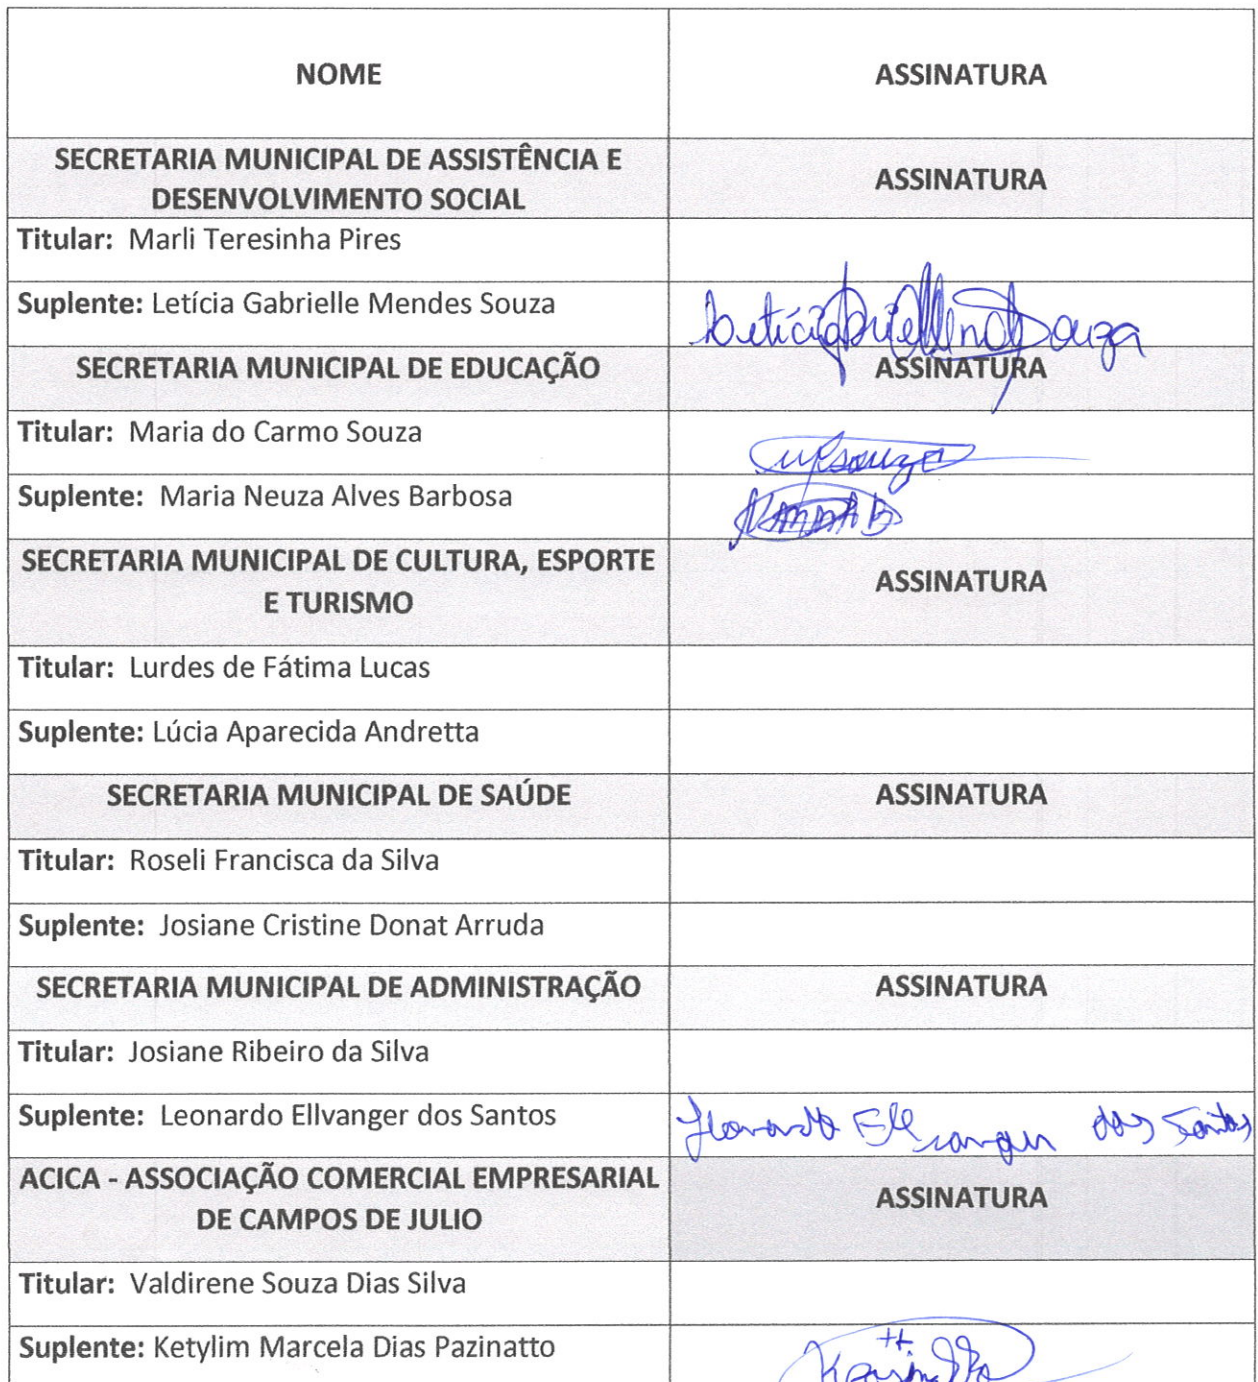 NOME ASSINATURA
SECRETARIA MUNICIPAL DE ASSISTÊNCIA E
DESENVOLVIMENTO SOCIAL ASSINATURA
Titular: Marli Teresinha Pires
Suplente: Letícia Gabrielle Mendes Souza
SECRETARIA MUNICIPAL DE EDUCAÇÃO ASSINATURA
Titular: Maria do Carmo Souza
Suplente: Maria Neuza Alves Barbosa
SECRETARIA MUNICIPAL DE CULTURA, ESPORTE
E TURISMO ASSINATURA
Titular: Lurdes de Fátima Lucas
Suplente: Lúcia Aparecida Andretta
SECRETARIA MUNICIPAL DE SAÚDE ASSINATURA
Titular: Roseli Francisca da Silva
Suplente: Josiane Cristine Donat Arruda
SECRETARIA MUNICIPAL DE ADMINISTRAÇÃO ASSINATURA
Titular: Josiane Ribeiro da Silva
Suplente: Leonardo Ellvanger dos Santos Leonardo Ellvanger dos Santos
ACICA - ASSOCIAÇÃO COMERCIAL EMPRESARIAL
DE CAMPOS DE JULIO ASSINATURA
Titular: Valdirene Souza Dias Silva
Suplente: Ketylim Marcela Dias Pazinatto